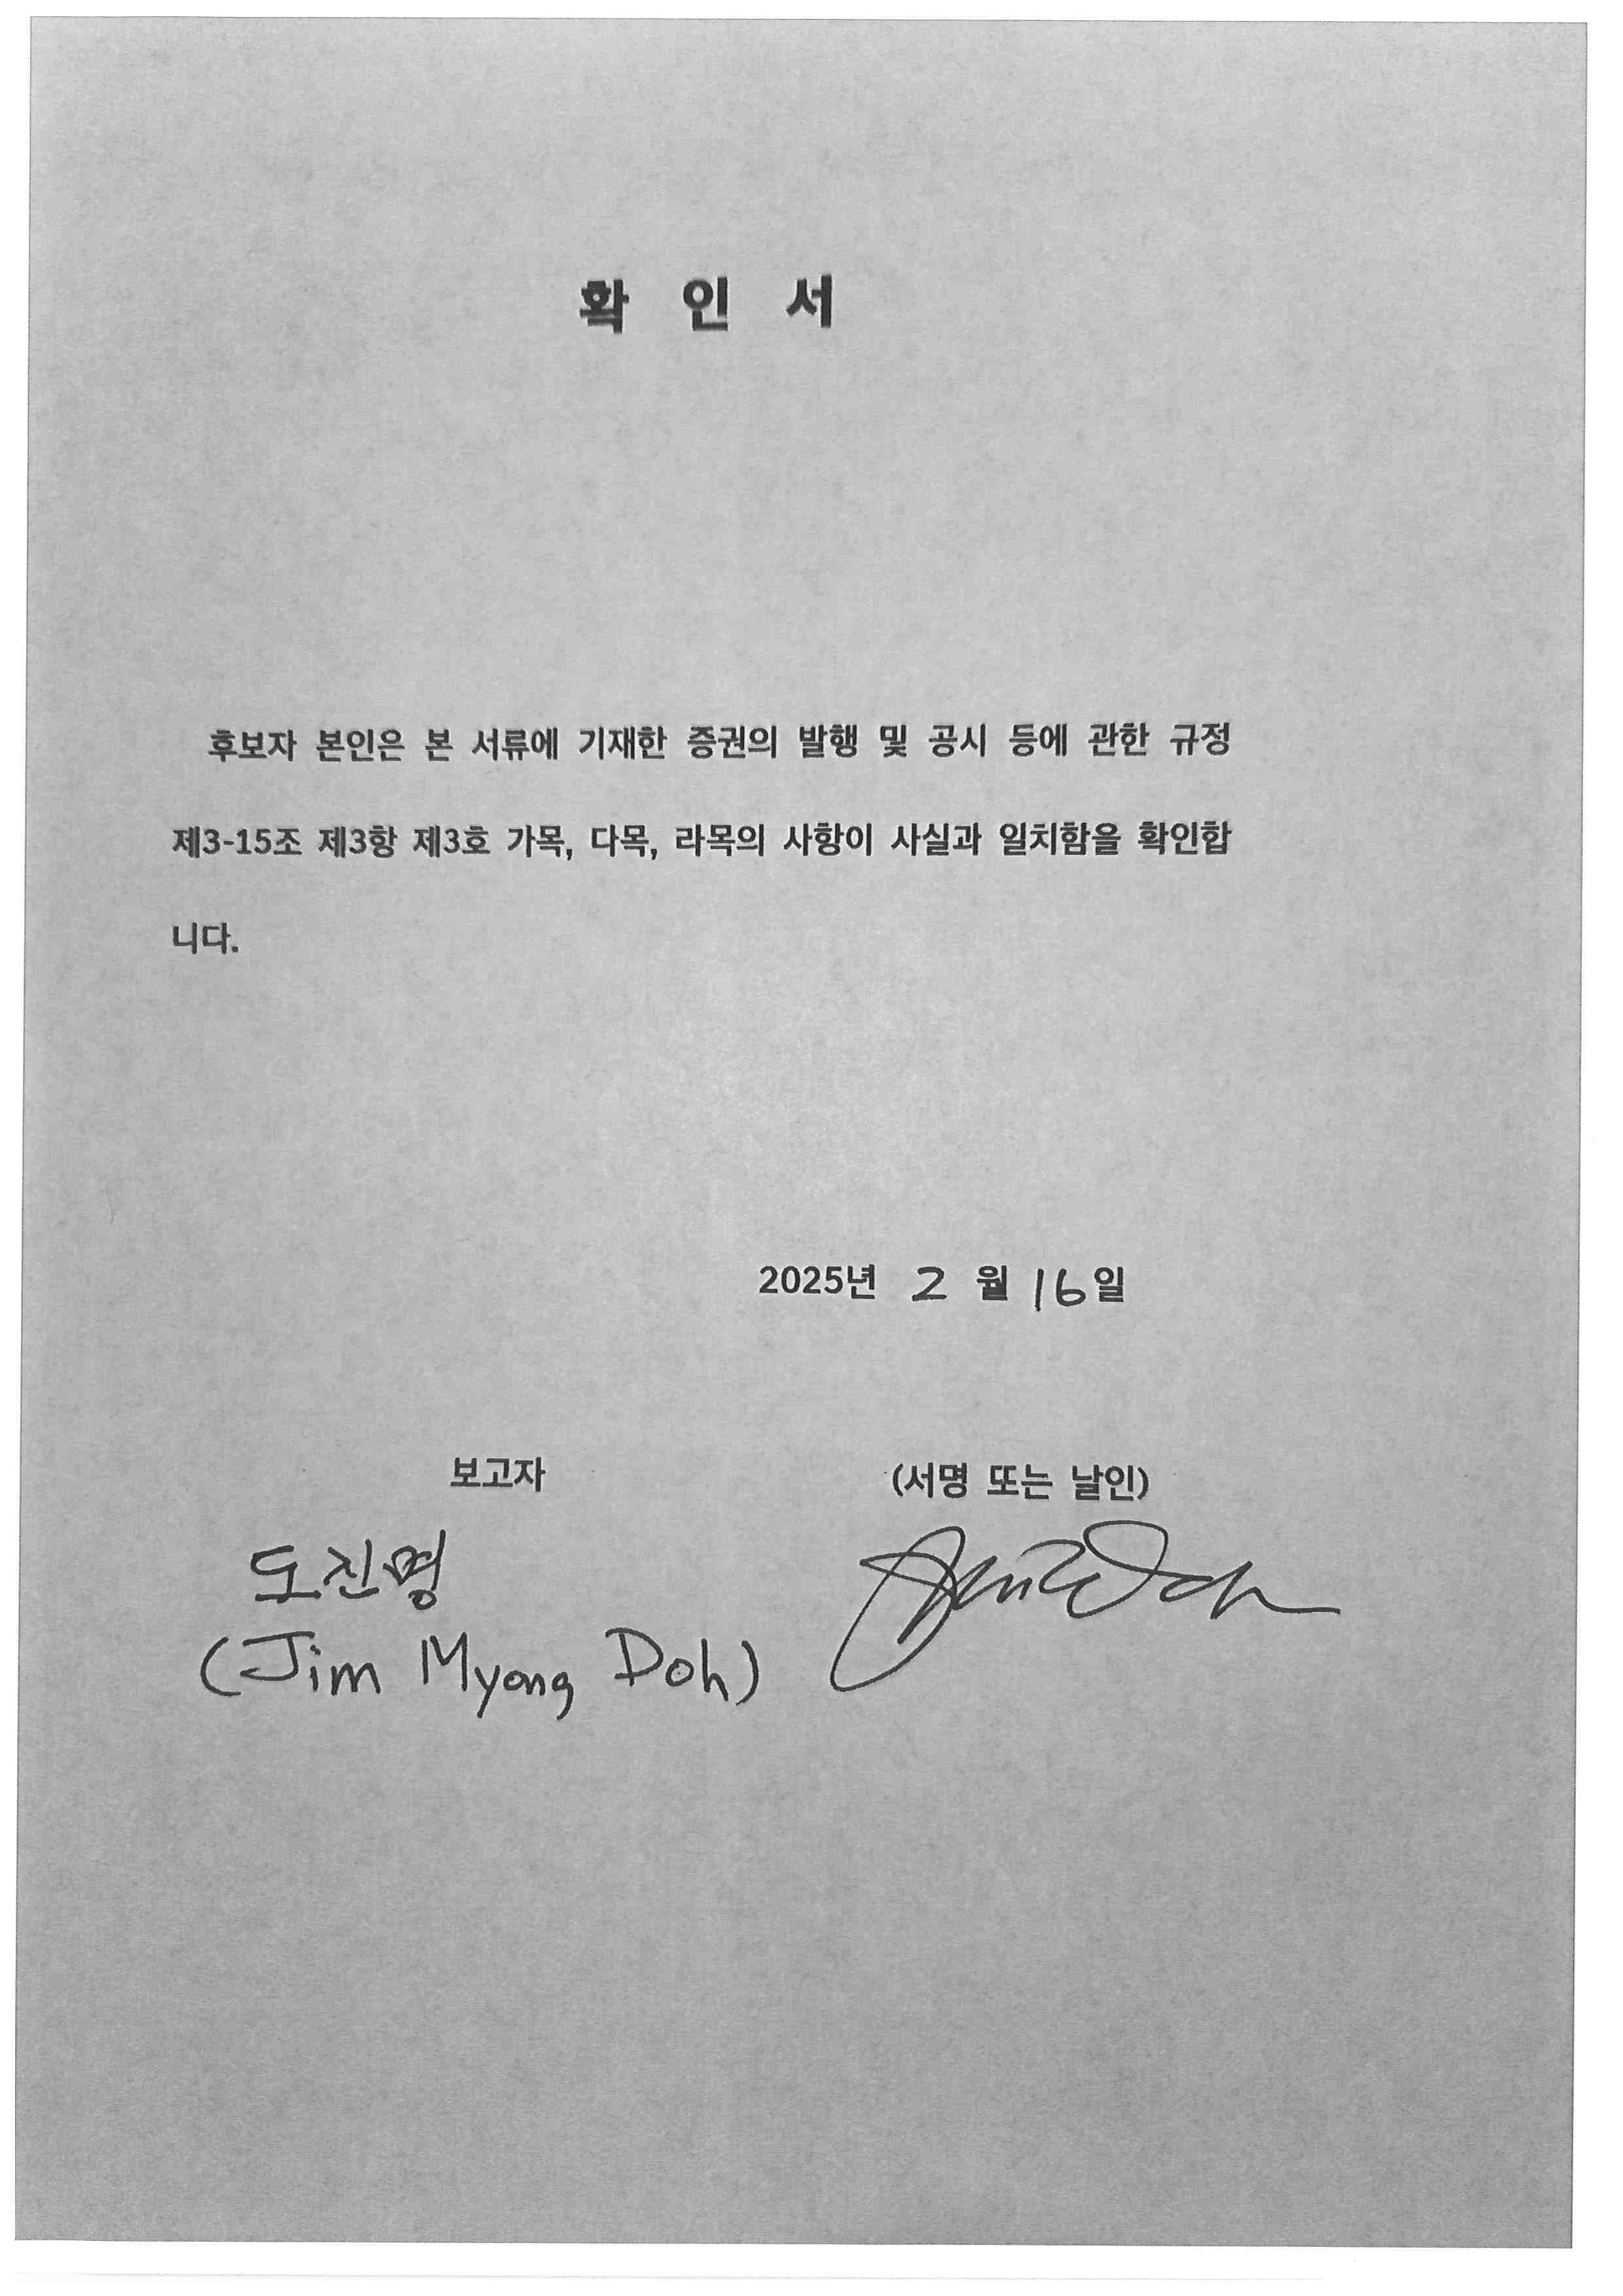 확 인 서
후보자 본인은 본 서류에 기재한 증권의 발행 및 공시 등에 관한 규정
제3-15조 제3항 제3호 가목, 다목, 라목의 사항이 사실과 일치함을 확인합
니다.
2025년 2 월 16일
보고자 (서명 또는 날인)
도진명
(Jim Myong Doh)